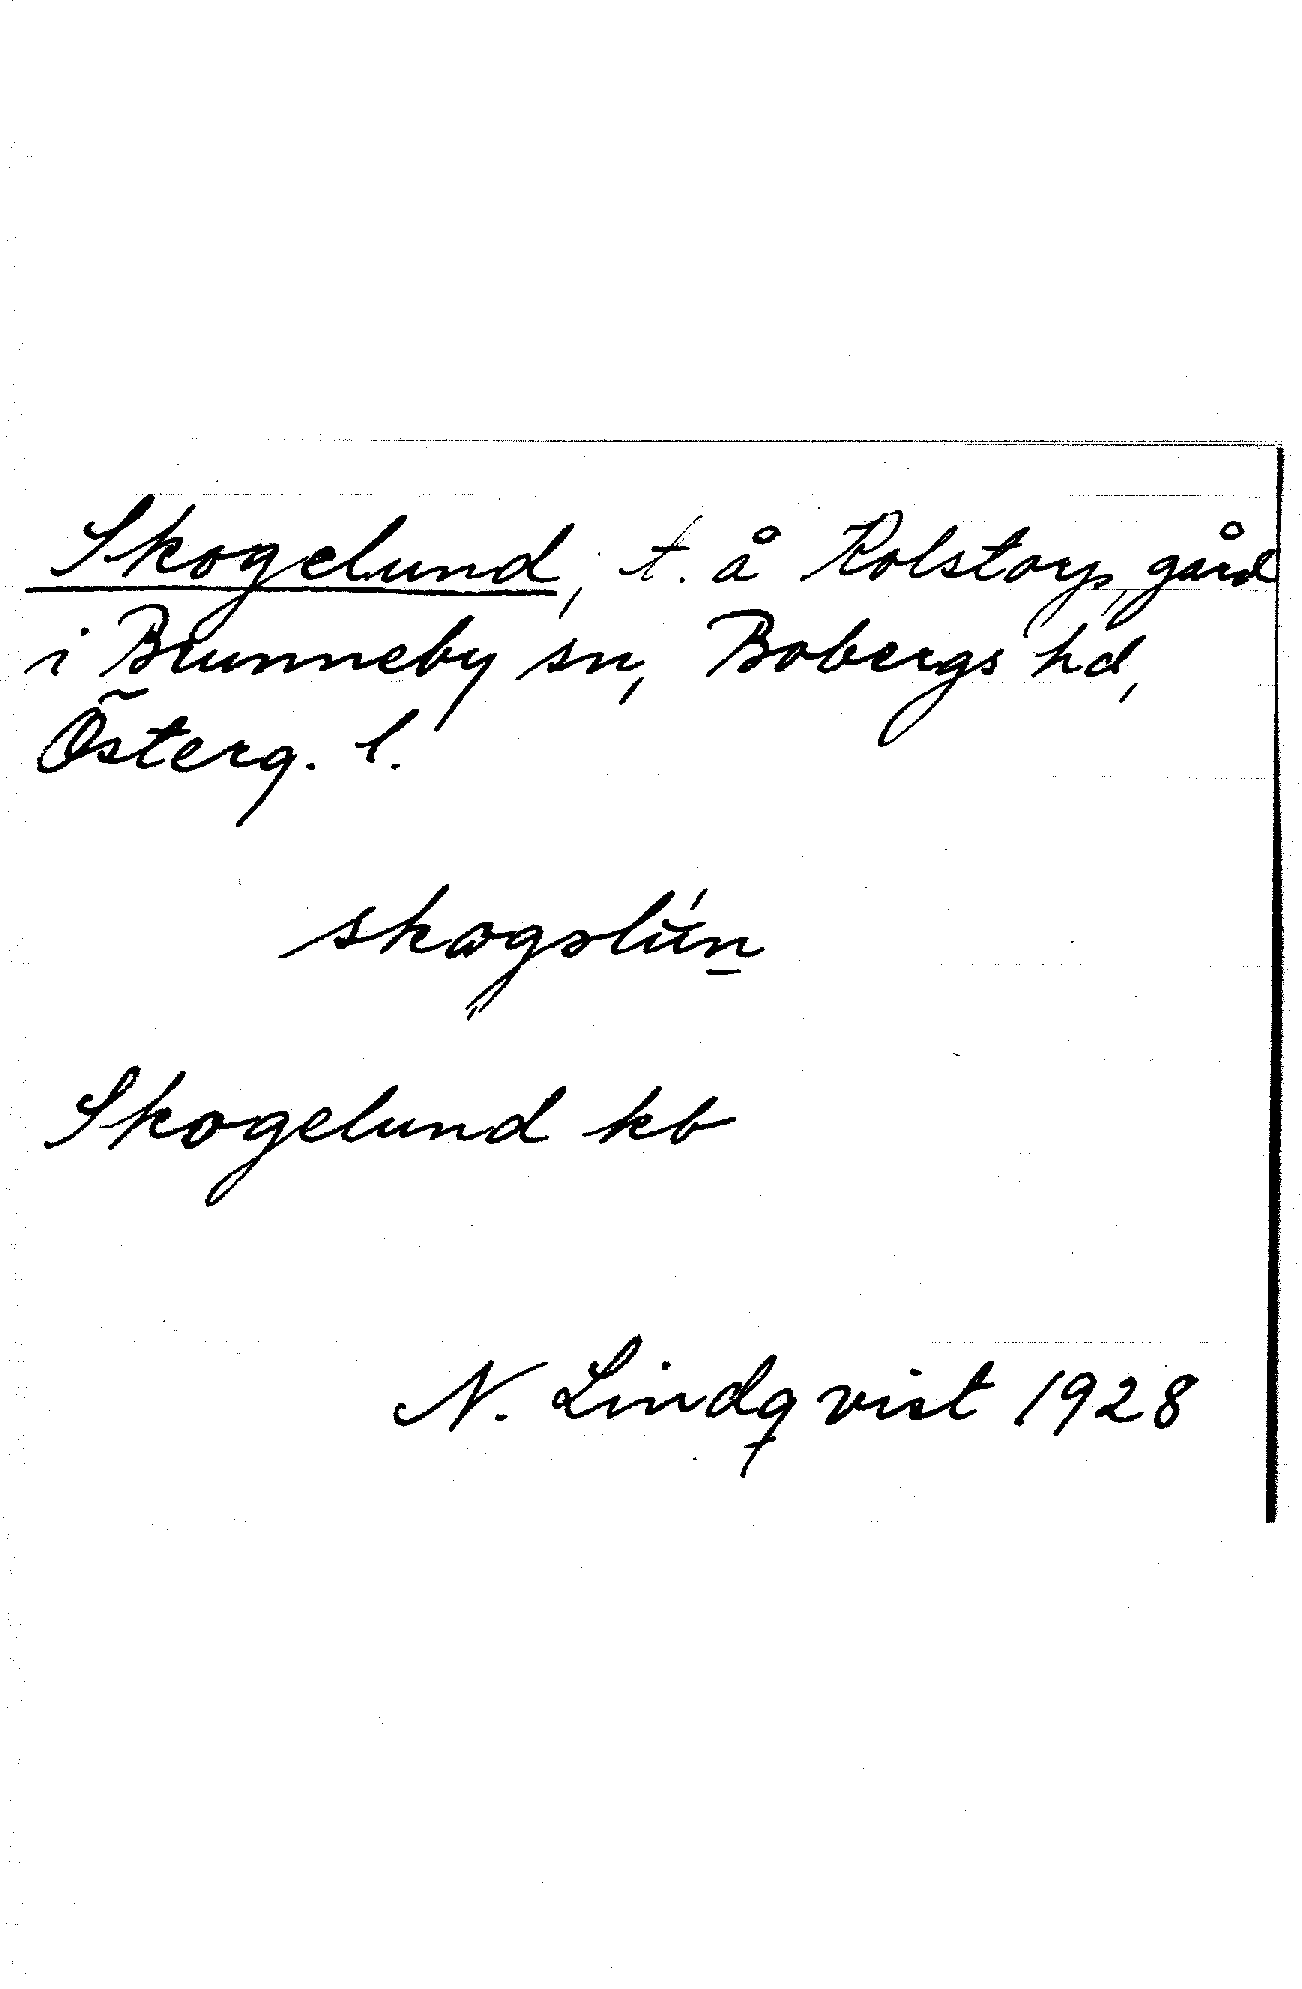 Skogelund, t. å Kolstorps gård
i Brunneby sn, Bobergs hd,
Österg. l.
Skogelund kb
N. Lindqvist 1928